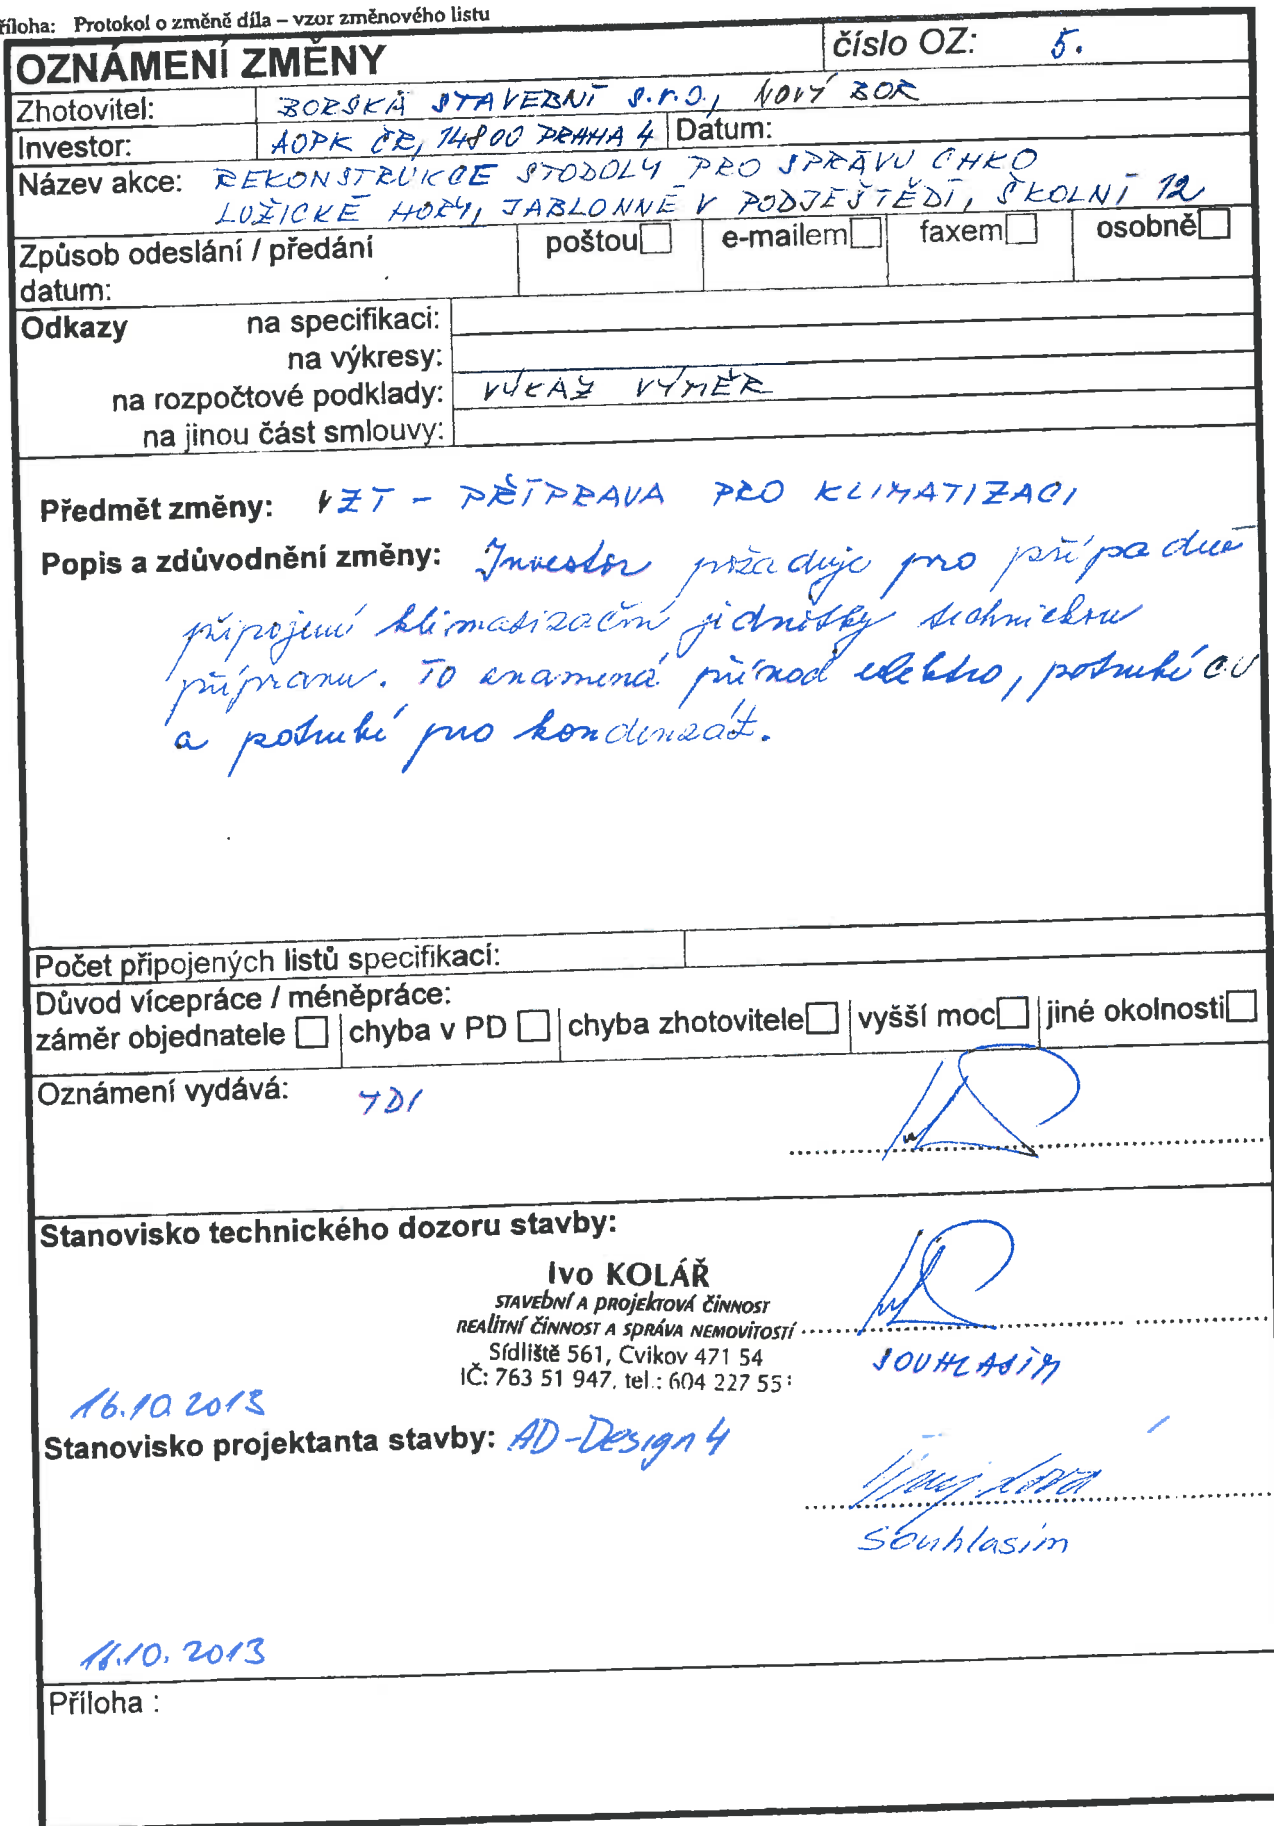 říloha: Protokol o změně díla – vzor změnového listu
OZNÁMENÍ ZMĚNY číslo OZ: 5.
Zhotovitel: BORSKÁ STAVEBNÍ s.r.o., NOVÝ BOR
Investor: AOPK ČR, 14800 PRAHA 4 Datum:
Název akce: REKONSTRUKCE STODOLY PRO SPRÁVU CHKO
LUŽICKÉ HORY, JABLONNÉ V PODJEŠTĚDÍ, ŠKOLNÍ 12
Způsob odeslání / předání poštou e-mailem faxem osobně
datum:
Odkazy na specifikaci:
na výkresy:
na rozpočtové podklady: VÝKAZ VÝMĚR
na jinou část smlouvy:
Předmět změny: VZT - PŘÍPRAVA PRO KLIMATIZACI
Popis a zdůvodnění změny: Investor požaduje pro případné
připojení klimatizační jednotky technickou
přípravu. To znamená přívod elektro, potrubí CU
a potrubí pro kondenzát.
Počet připojených listů specifikací:
Důvod vícepráce / méněpráce:
záměr objednatele chyba v PD chyba zhotovitele vyšší moc jiné okolnosti
Oznámení vydává: TDI
Stanovisko technického dozoru stavby:
Ivo KOLÁŘ
STAVEBNÍ A PROJEKTOVÁ ČINNOST
REALITNÍ ČINNOST A SPRÁVA NEMOVITOSTÍ
Sídliště 561, Cvikov 471 54
IČ: 763 51 947, tel.: 604 227 55
SOUHLASÍM
16.10.2013
Stanovisko projektanta stavby: AD-Design 4
Souhlasím
16.10.2013
Příloha :